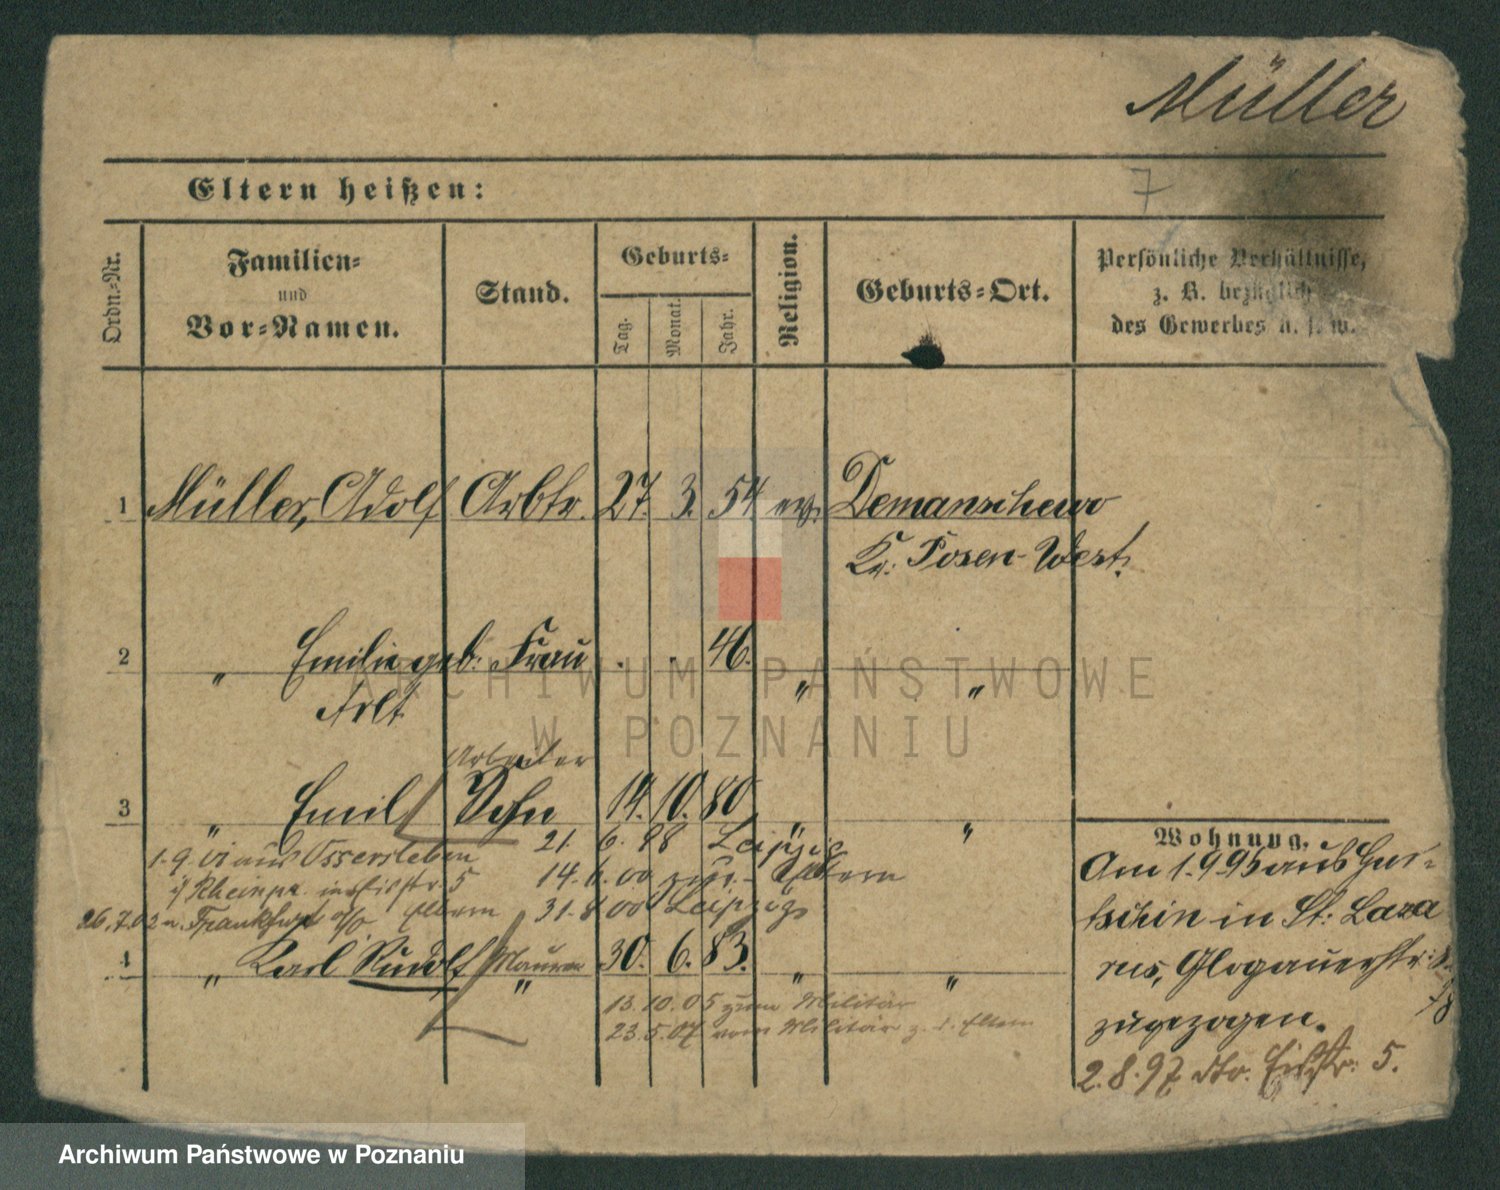 Müller
7
Eltern heißen:
Ordn.-Nr.
Familien-
und
Vor-Namen.
Stand.
Geburts-
Tag.
Monat.
Jahr.
Religion.
Geburts-Ort.
Persönliche Verhältnisse,
z. B. bezüglich
des Gewerbes u. s. w.
1 Müller, Adolf Arbtr. 27. 3. 54 ev. Demanschewo
Kr. Posen-West.
2 " Emilie geb. Frau . . 46. " "
Arlt
Arbeiter
3 " Emil Sohn 14. 10. 80 " "
21. 6. 98 Leipzig
1.9.01 aus Ossersleben
14. 00 zur. Eltern
Rheinpr. 5
31. 8 00 Leipzig
26.7.02 n. Frankfurt a/O. Eltern
4 " Karl Rudolf Maurer " 30. 6. 83. " "
13.10.05 zum Militär
23.5.07 vom Militär z. d. Eltern
Wohnung.
Am 1.9.95 aus Gur-
tschin in St: Laza
rus, Glogauerstr.
78
zugezogen.
2.8.97 dto. 5.
ARCHIWUM PAŃSTWOWE
W POZNANIU
Archiwum Państwowe w Poznaniu